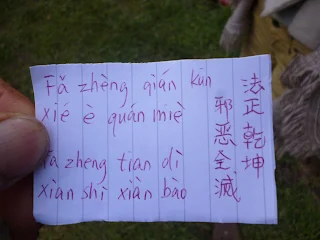 Fǎ zhèng qián kūn
xié è quán miè
Fǎ zheng tian dì
xiàn shì xiàn bào
法正乾坤
邪恶全滅